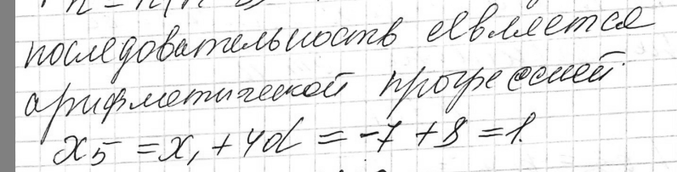 последовательность является
арифметической прогрессией.
x₅ = x₁ + 4d = -7 + 8 = 1.